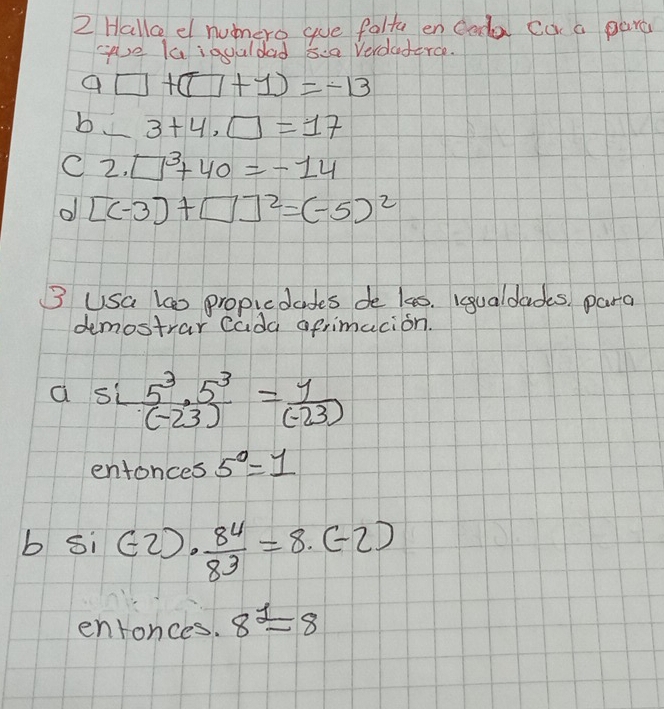 2 Halla el numero que falta en cada caso para
que la igualdad sea Verdadera.
a □ + (□ + 1) = -13
b - 3 + 4 . □ = 17
c 2. □³ + 40 = -14
d [(-3) + □]² = (-5)²
3 Usa las propiedades de las. igualdades. para
demostrar cada afrimación.
a si 5³ . 5³ / (-23) = 1 / (-23)
entonces 5⁰ = 1
b si (-2) . 8⁴ / 8³ = 8. (-2)
entonces. 8¹ = 8